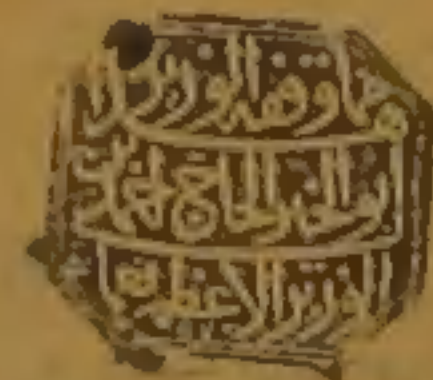 مما وقفه الوزير
ابو الخير الحاج احمد
الوزير الاعظم